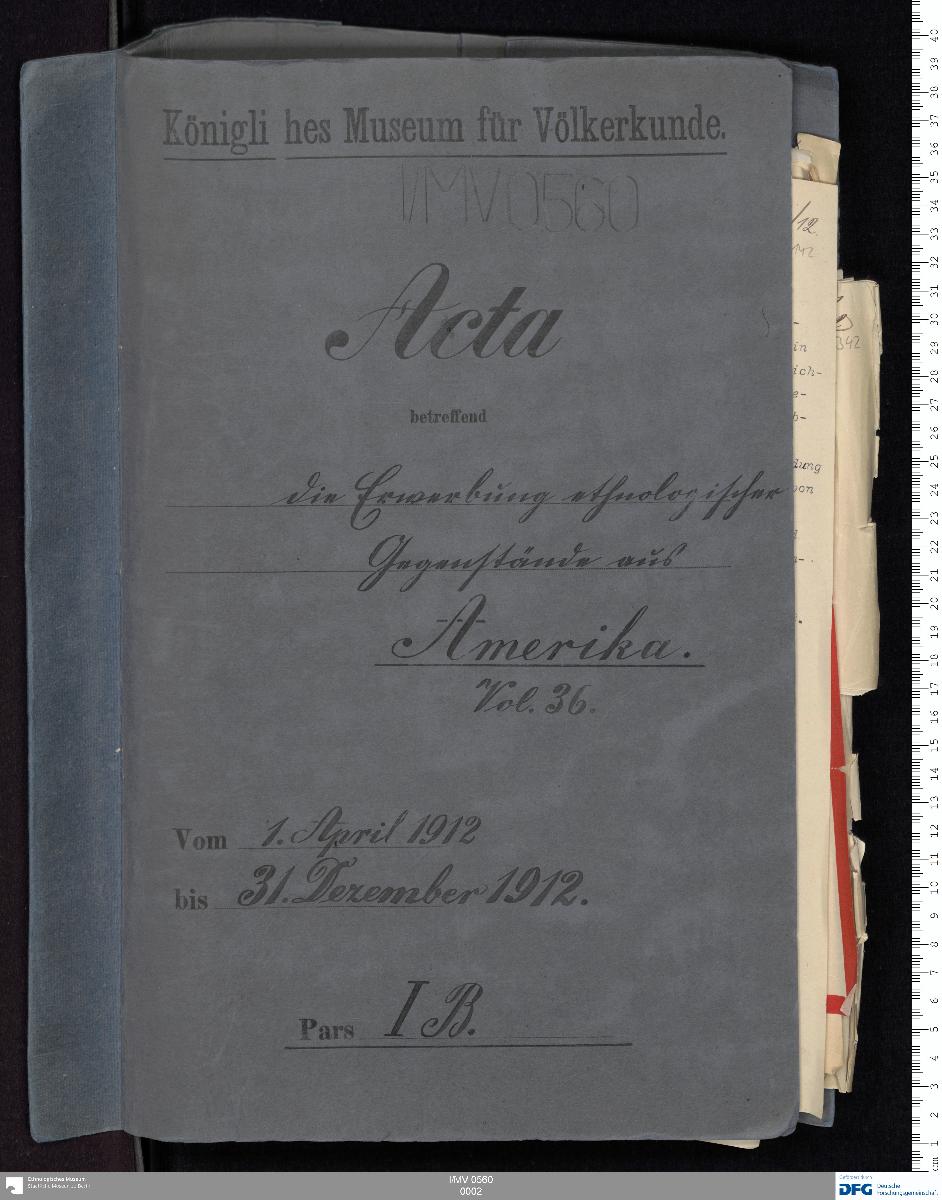 Königli hes Museum für Völkerkunde.
I/MV 0560
Acta
betreffend
die Erwerbung ethnologischer
Gegenstände aus
Amerika.
Vol. 36.
Vom 1. April 1912
bis 31. Dezember 1912.
Pars I B.
/12.
342
in
ich-
e-
b-
dung
von
Ethnologisches Museum
Staatliche Museen zu Berlin
I/MV 0560
0002
Gefördert durch
DFG Deutsche
Forschungsgemeinschaft
cm 1 2 3 4 5 6 7 8 9 10 11 12 13 14 15 16 17 18 19 20 21 22 23 24 25 26 27 28 29 30 31 32 33 34 35 36 37 38 39 40